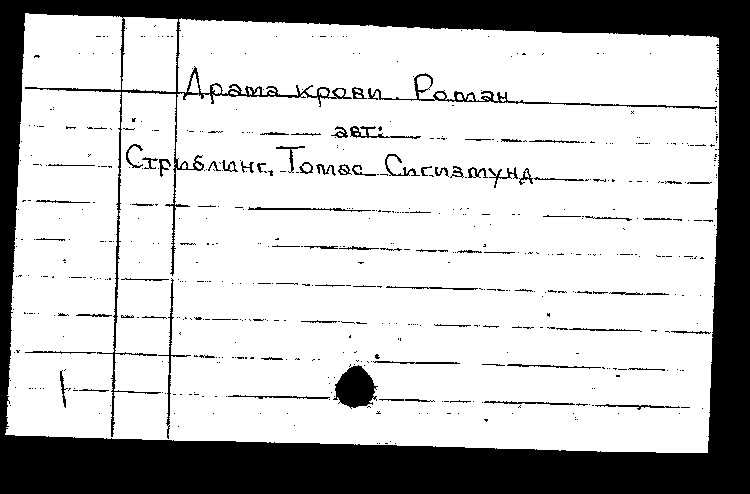 Драма крови. Роман.
авт:
Стриблинг, Томас Сигизмунд